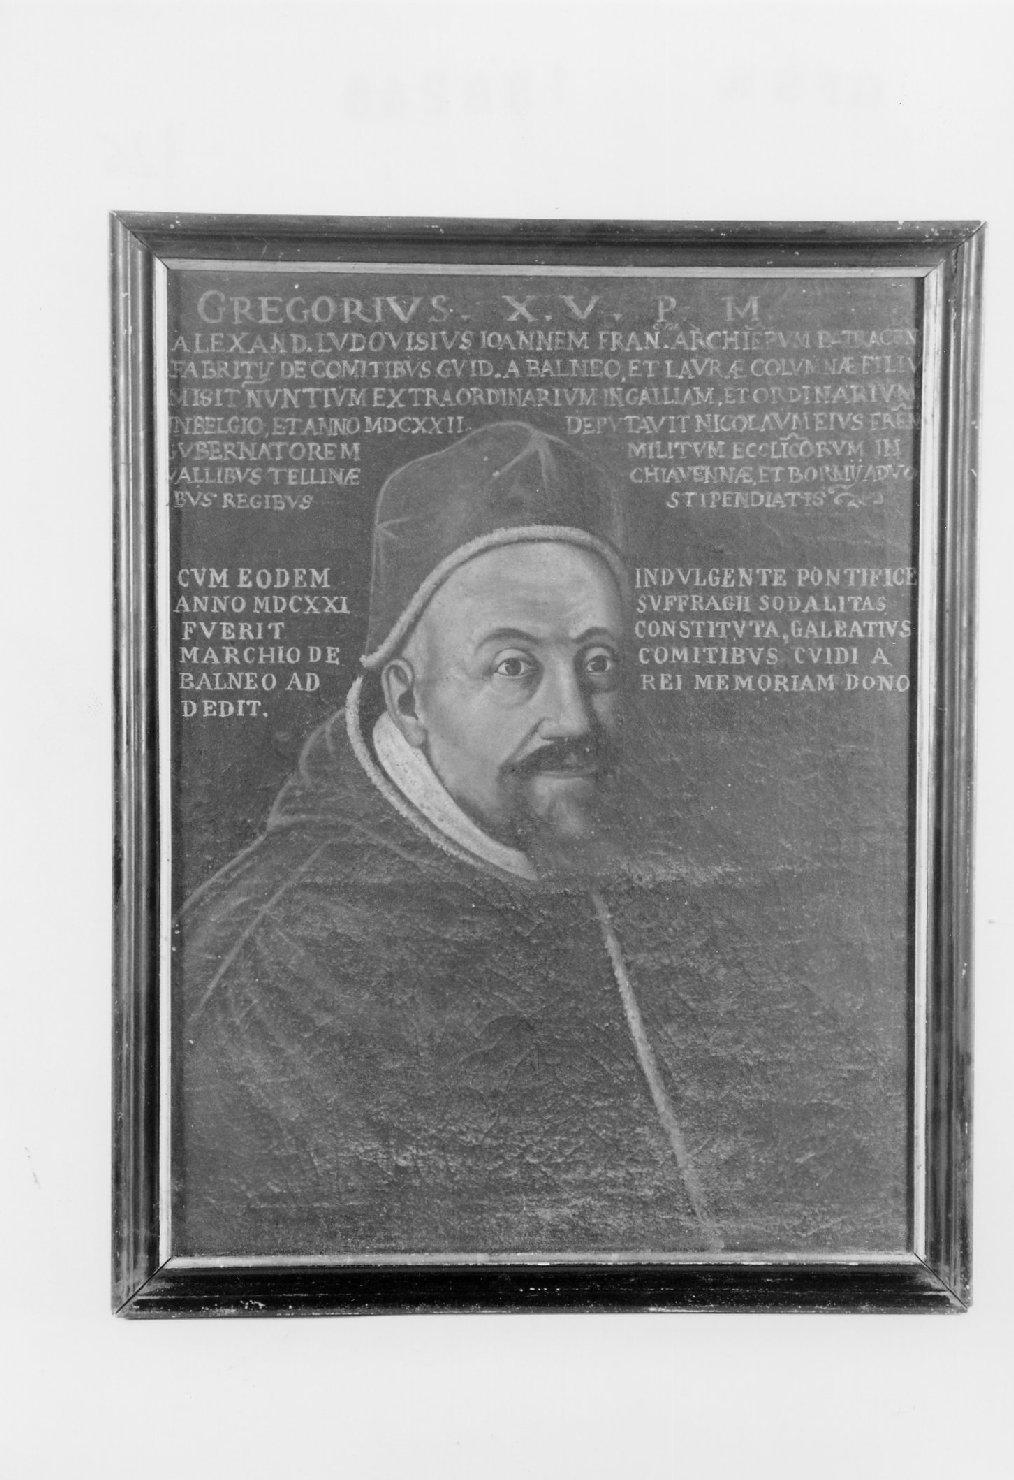 GREGORIVS. X.V. P. M.
ALEXAND. LVDOVISIVS IOANNEM FRAN. ARCHIEPVM
FABRITIJ DE COMITIBVS GVID. A BALNEO, ET LAVRÆ COLVMNÆ
MISIT NVNTIVM EXTRAORDINARIVM IN GALLIAM, ET ORDINARIVM
INBELGIO, ET ANNO MDCXXII. DEPVTAVIT NICOLAVM EIVS
GVBERNATOREM MILITVM ECCLICORVM IN
VALLIBVS TELLINÆ CHIAVENNÆ, ET
BVS REGIBVS STIPENDIATIS
CVM EODEM INDVLGENTE PONTIFICE
ANNO MDCXXI SVFFRAGII SODALITAS
FVERIT CONSTITVTA, GALEATIVS
MARCHIO DE COMITIBVS GVIDI A
BALNEO AD REI MEMORIAM DONO
DEDIT.